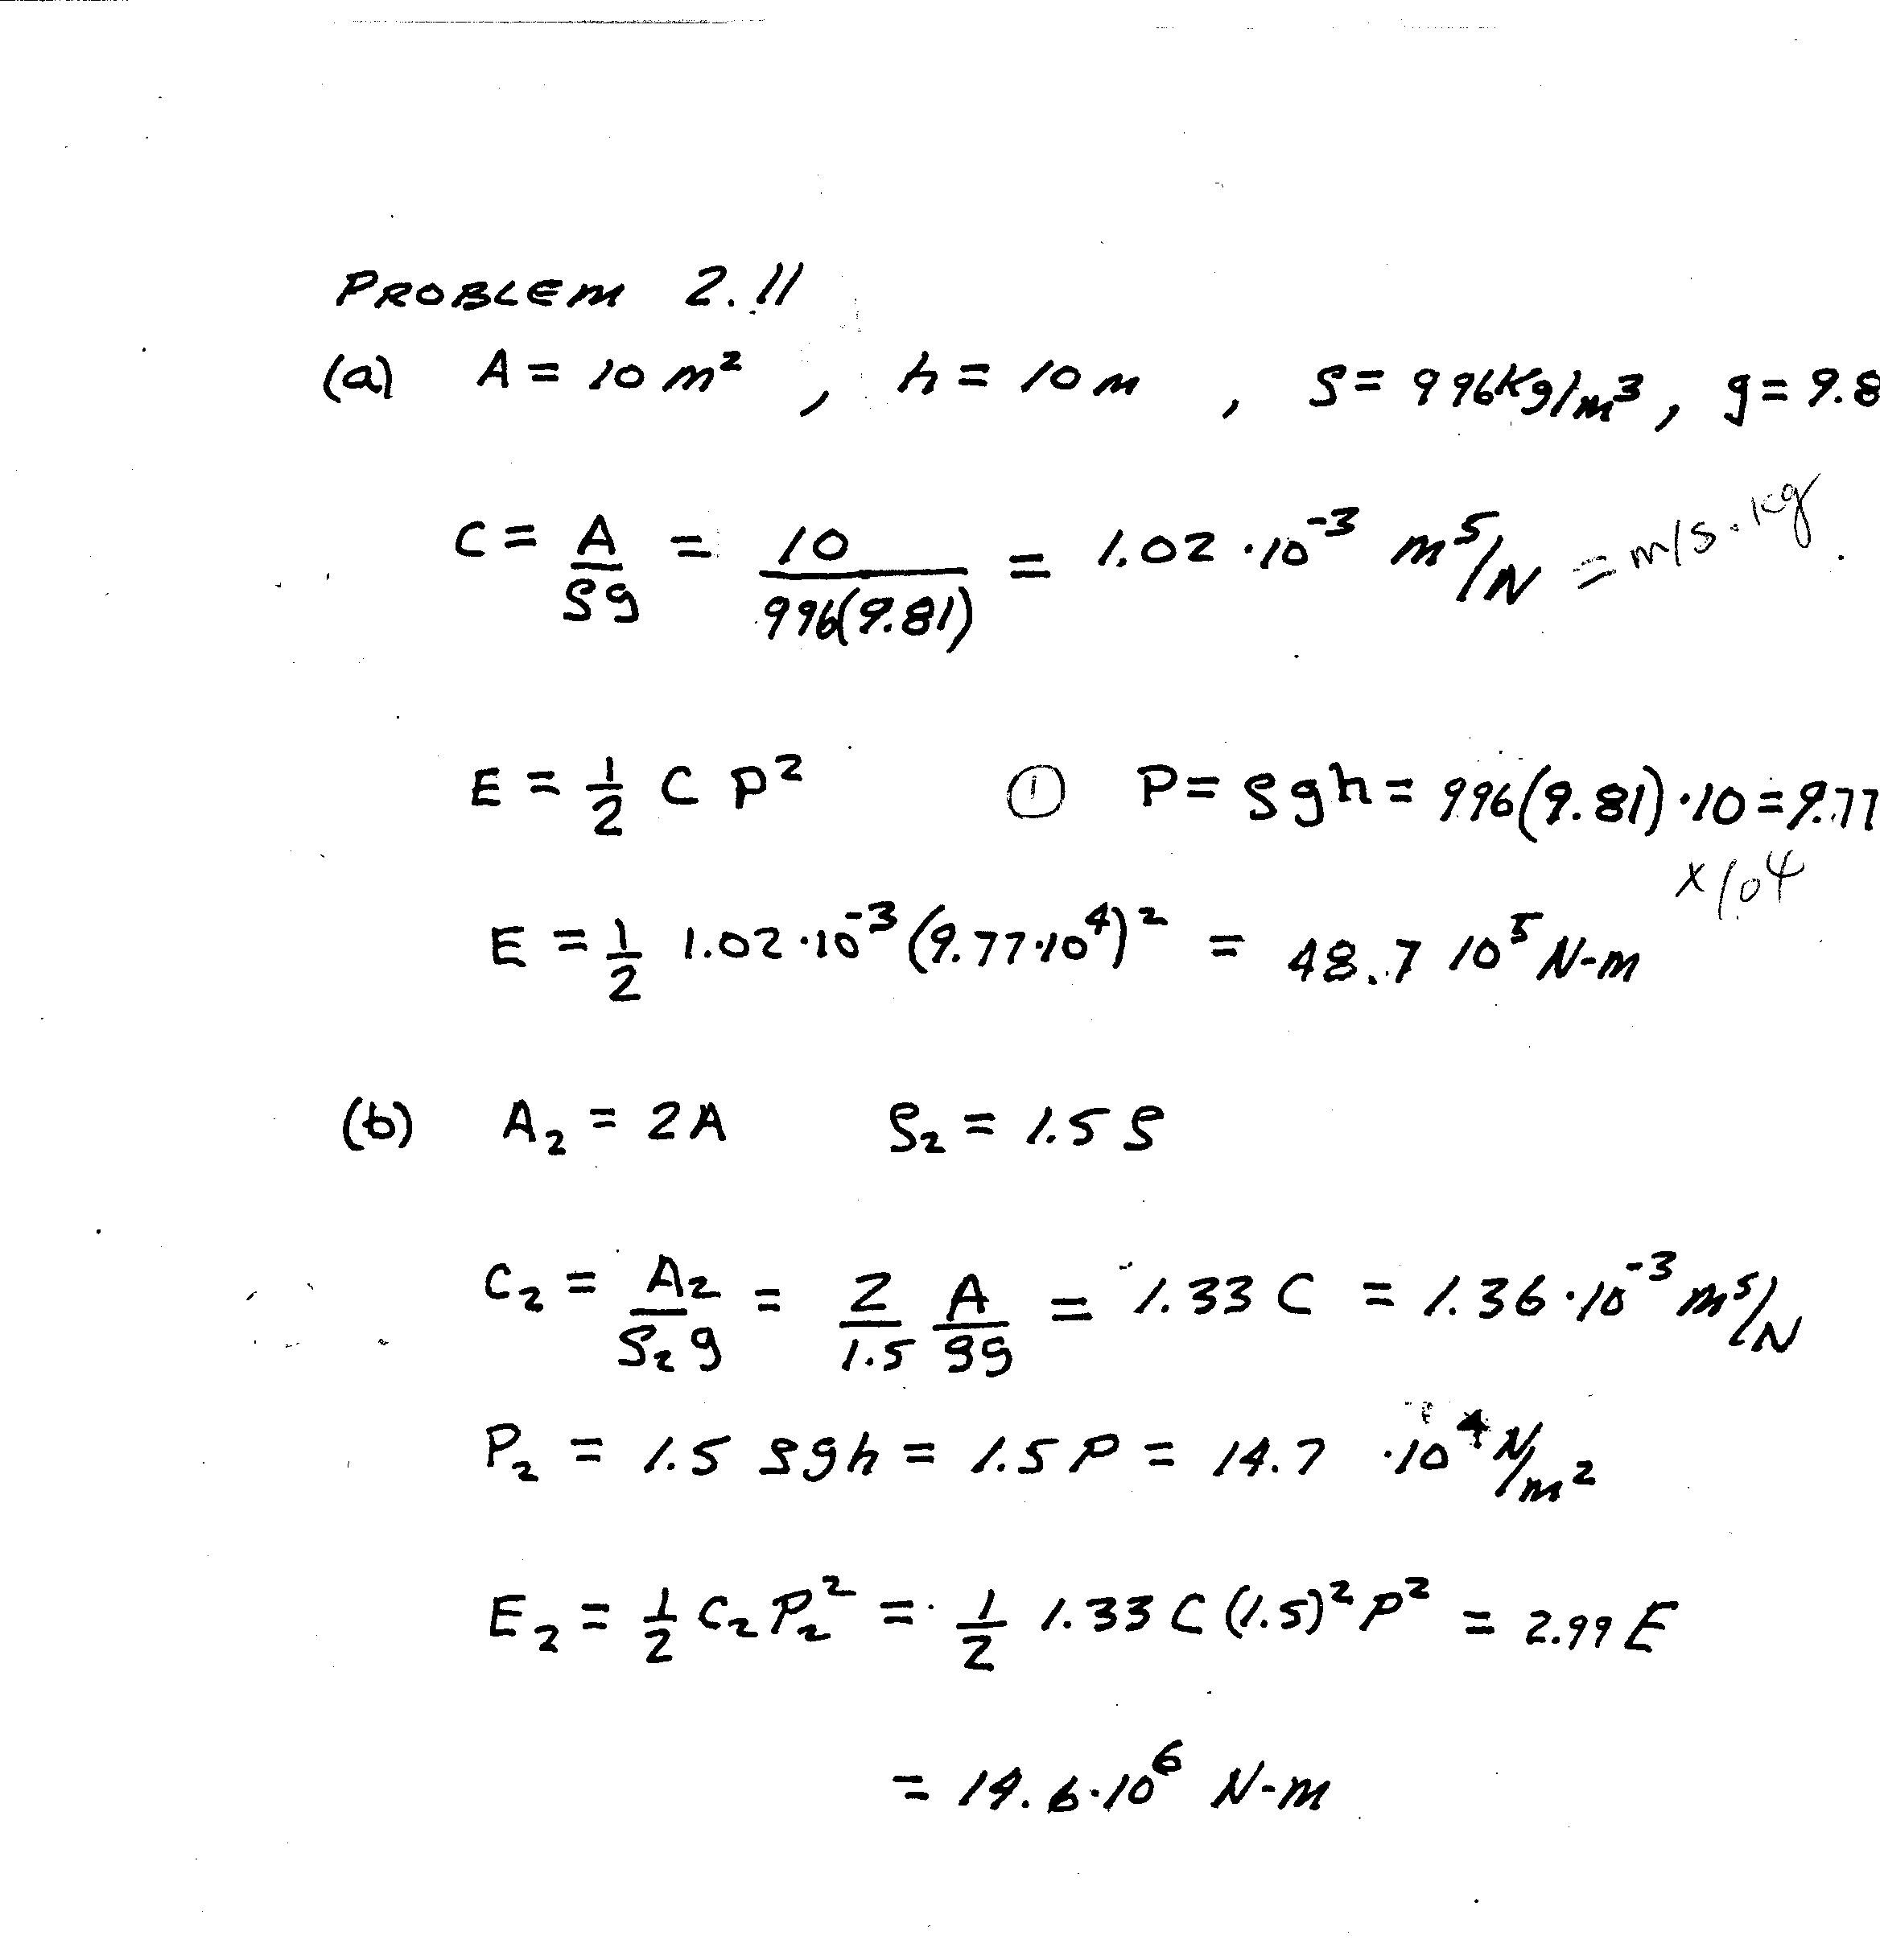 PROBLEM 2.11
(a) A = 10 m² , h = 10 m , ρ = 996 Kg/m³ , g = 9.8
C = A/ρg = 10/996(9.81) = 1.02 · 10⁻³ m⁵/N = m/s.kg
E = 1/2 C P² ① P = ρgh = 996(9.81) · 10 = 9.77
x 10⁴
E = 1/2 1.02 · 10⁻³ (9.77 · 10⁴)² = 48.7 10⁵ N-m
(b) A₂ = 2A ρ₂ = 1.5 ρ
C₂ = A₂/ρ₂g = 2/1.5 A/ρg = 1.33 C = 1.36 · 10⁻³ m⁵/N
P₂ = 1.5 ρgh = 1.5 P = 14.7 · 10⁴ N/m²
E₂ = 1/2 C₂ P₂² = 1/2 1.33 C (1.5)² P² = 2.99 E
= 14.6 · 10⁶ N-m